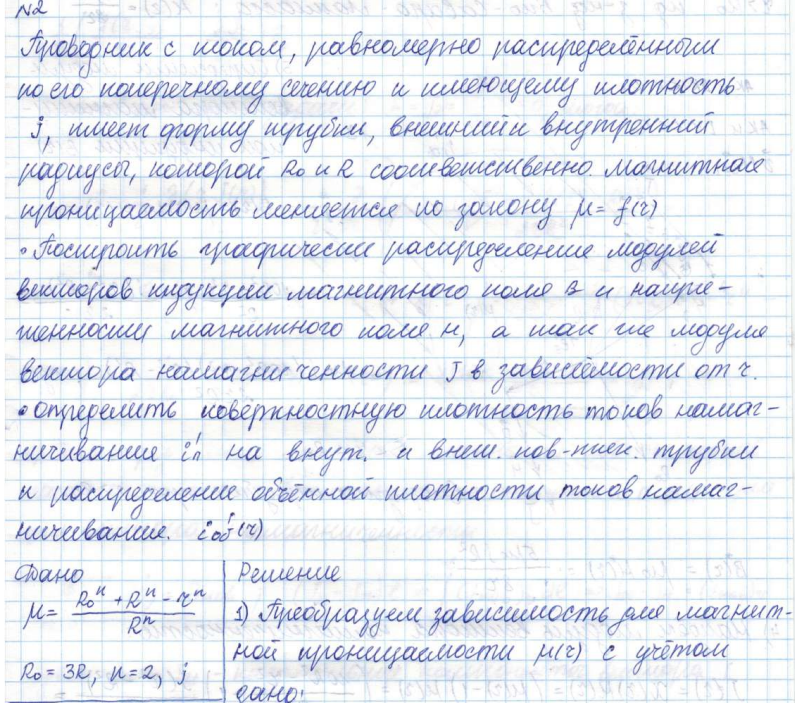 N2
Проводник с током, равномерно распределённым
по его поперечному сечению и имеющему плотность
j, имеет форму трубки, внешний и внутренний
радиусы, которой R₀ и R соответственно. Магнитная
проницаемость меняется по закону μ = f(r)
• Построить графически распределение модулей
векторов индукции магнитного поля B и напря-
женности магнитного поля H, а так же модуля
вектора намагниченности J в зависимости от r.
• Определить поверхностную плотность токов намаг-
ничивания i'п на внут. и внеш. пов-тях. трубки
и распределение объёмной плотности токов намаг-
ничивания. i'об(r)
Дано
μ = (R₀ⁿ + Rⁿ - rⁿ) / Rⁿ
R₀ = 3R, n = 2, j
Решение
1) Преобразуем зависимость для магнит-
ной проницаемости μ(r) с учётом
дано: